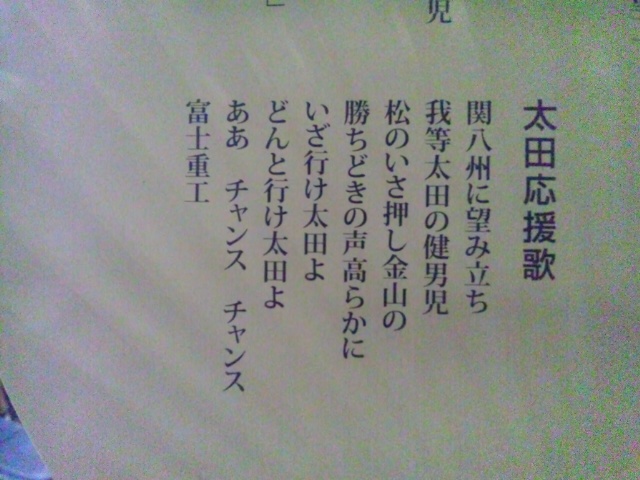 太田応援歌
関八州に望み立ち
我等太田の健男児
松のいさ押し金山の
勝ちどきの声高らかに
いざ行け太田よ
どんと行け太田よ
ああ チャンス チャンス
富士重工
児
」